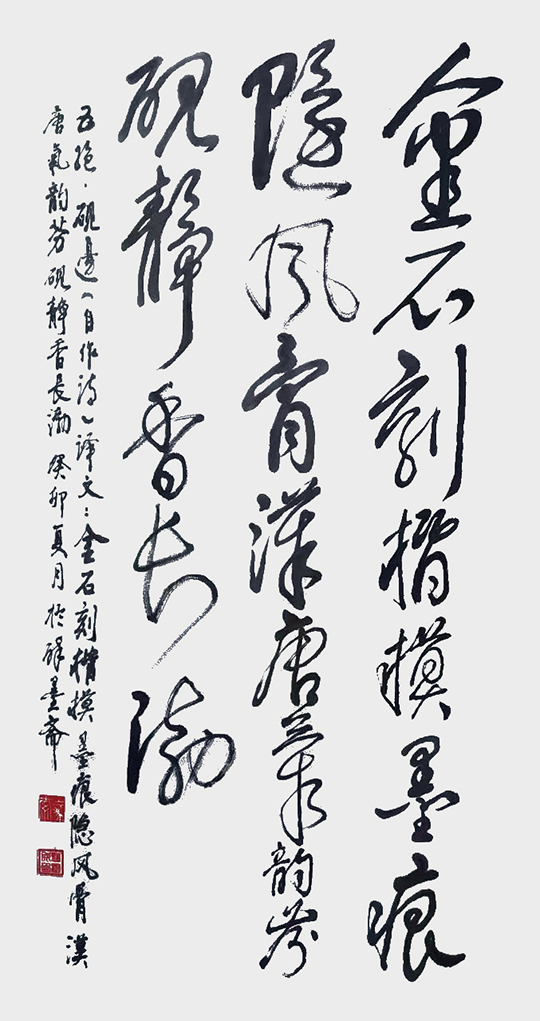 金石刻楷模墨痕
隐风骨漢唐氣韵芬
硯静香长渤
五絕·硯邊（自作诗）译文：金石刻楷模墨痕隐风骨漢
唐氣韵芬硯静香長渤 癸卯夏月於墨斋